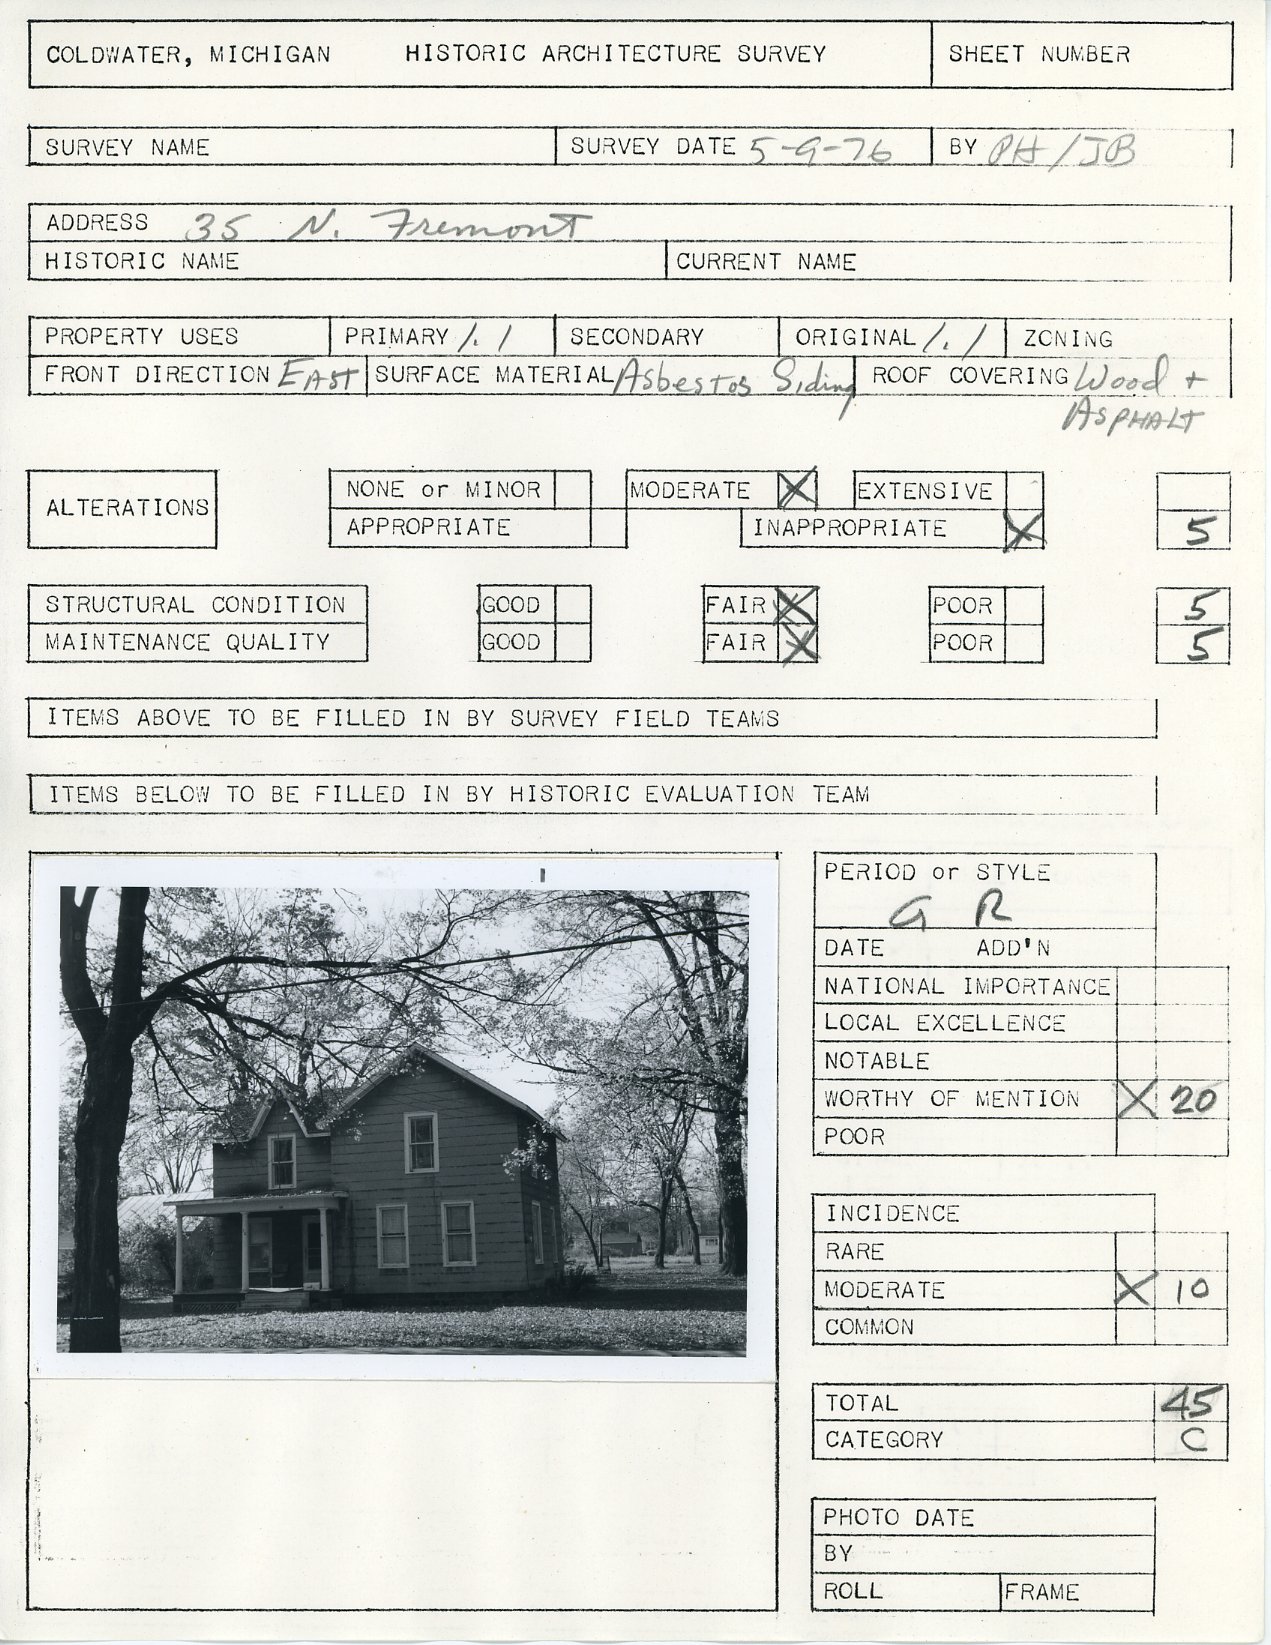 COLDWATER, MICHIGAN HISTORIC ARCHITECTURE SURVEY SHEET NUMBER
SURVEY NAME SURVEY DATE 5-9-76 BY PH/JB
ADDRESS 35 N. Fremont
HISTORIC NAME CURRENT NAME
PROPERTY USES PRIMARY 1.1 SECONDARY ORIGINAL 1.1 ZONING
FRONT DIRECTION EAST SURFACE MATERIAL Asbestos Siding ROOF COVERING Wood +
ASPHALT
ALTERATIONS NONE or MINOR MODERATE X EXTENSIVE
APPROPRIATE INAPPROPRIATE X 5
STRUCTURAL CONDITION GOOD FAIR X POOR 5
MAINTENANCE QUALITY GOOD FAIR X POOR 5
ITEMS ABOVE TO BE FILLED IN BY SURVEY FIELD TEAMS
ITEMS BELOW TO BE FILLED IN BY HISTORIC EVALUATION TEAM
PERIOD or STYLE
G R
DATE ADD'N
NATIONAL IMPORTANCE
LOCAL EXCELLENCE
NOTABLE
WORTHY OF MENTION X 20
POOR
INCIDENCE
RARE
MODERATE X 10
COMMON
TOTAL 45
CATEGORY C
PHOTO DATE
BY
ROLL FRAME